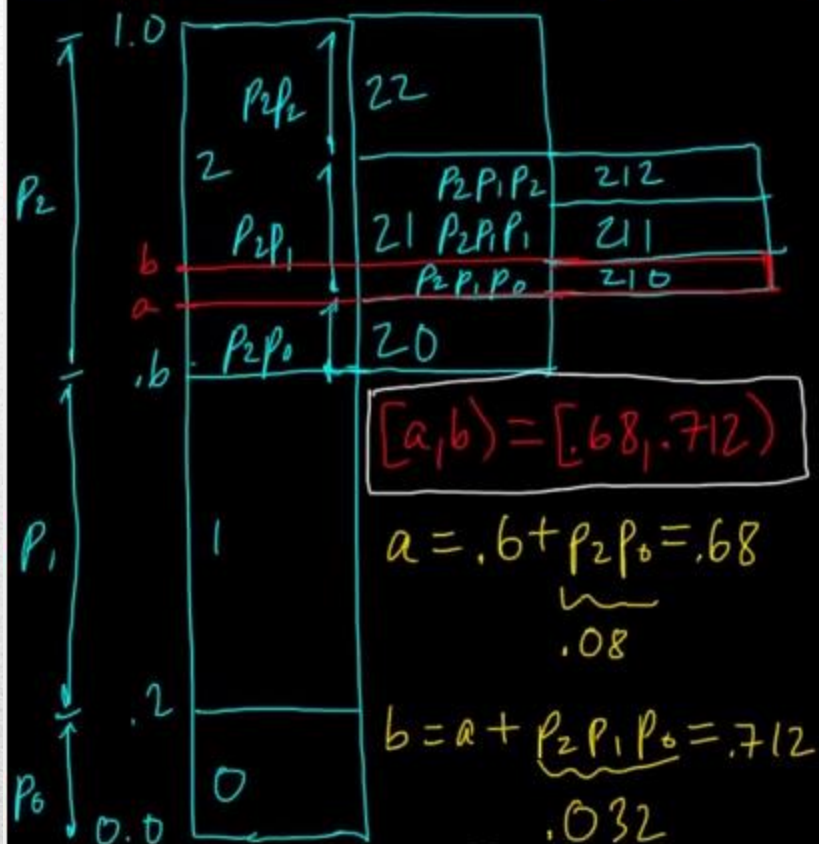 1.0
P₂P₂ 22
2
P₂
P₂P₁P₂ 212
P₂P₁ 21 P₂P₁P₁ 211
b
P₂P₁P₀ 210
a
P₂P₀ 20
.6
[a,b) = [.68, .712)
P₁
1
a = .6 + P₂P₀ = .68
.08
.2
b = a + P₂P₁P₀ = .712
0
P₀
.032
0.0